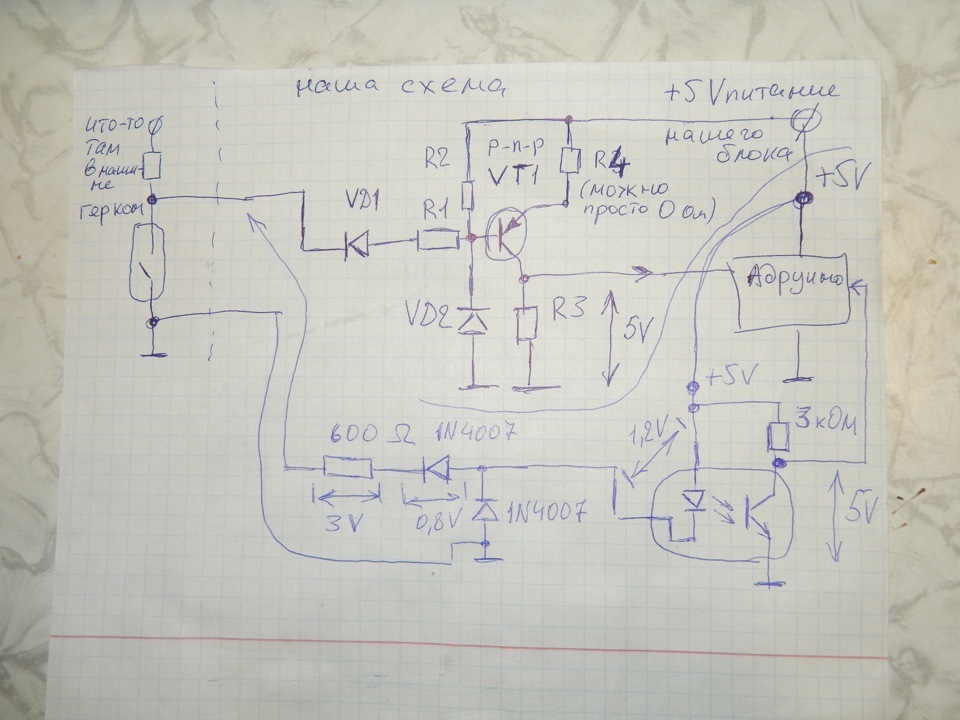 наша схема
+5V питание
нашего
блока
что-то
там
в маши-
не
геркон
VD1
R1
R2
p-n-p
VT1
R4
(можно
просто 0 ом)
+5V
Адруино
VD2
R3
5V
+5V
600 Ω
1N4007
1,2V
3 кОм
3V
0,8V
1N4007
5V